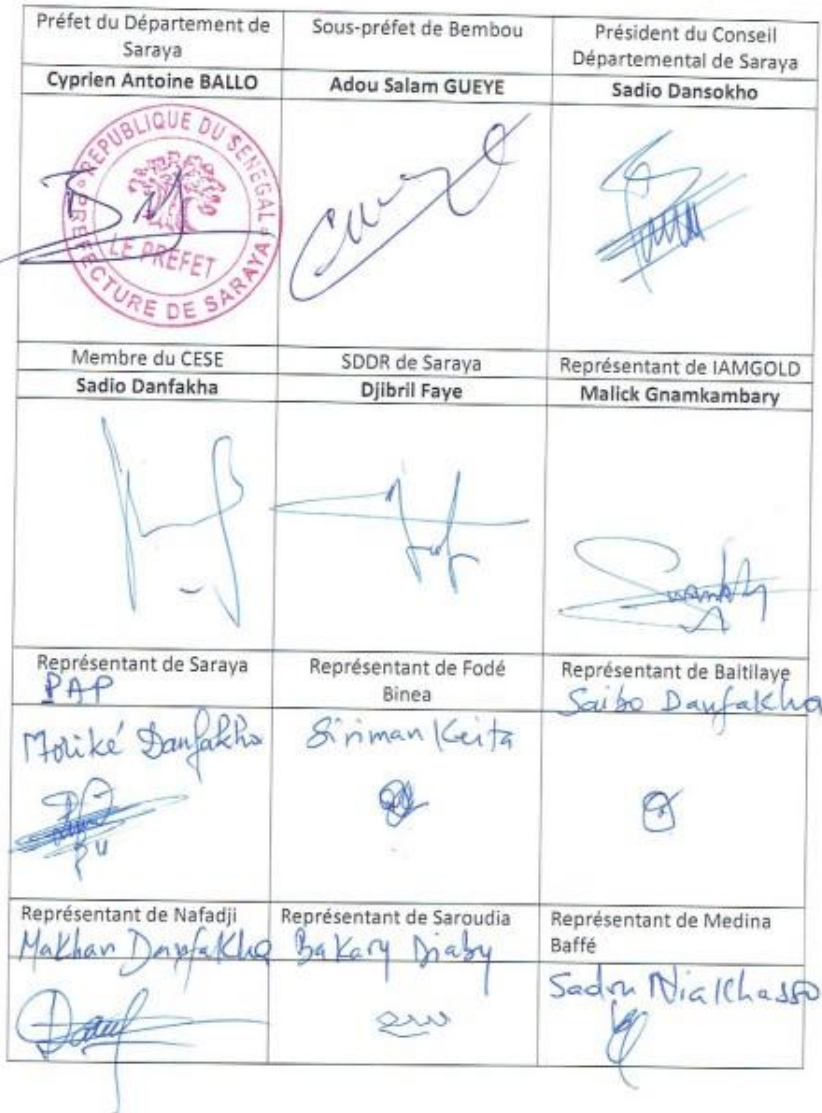 Préfet du Département de
Saraya
Sous-préfet de Bembou
Président du Conseil
Départemental de Saraya
Cyprien Antoine BALLO
Adou Salam GUEYE
Sadio Dansokho
REPUBLIQUE DU SENEGAL
LE PREFET
PREFECTURE DE SARAYA
Membre du CESE
SDDR de Saraya
Représentant de IAMGOLD
Sadio Danfakha
Djibril Faye
Malick Gnamkambary
Représentant de Saraya
PAP
Représentant de Fodé
Binea
Représentant de Baitilaye
Saibo Danfakha
Moriké Danfakha
Siriman Keita
Représentant de Nafadji
Makhan Danfakha
Représentant de Saroudia
Bakary Diaby
Représentant de Medina
Baffé
Sadou Niakhasso